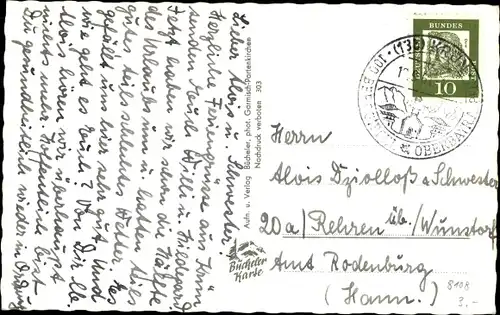 Lieber Alois u. Schwester!
Herzliche Feriengrüsse aus Krün
senden Euch Willi u. Hildegard.
Jetzt haben wir schon die Hälfte
des Urlaubs um u. hatten teils
gutes teils schlechtes Wetter. Es
gefällt uns hier sehr gut. Und
wie geht es Euch? Von Dir lb.
Alois hören wir überhaupt
nichts mehr. Hoffentlich bist
Du gesundheitlich wieder in Ordnung
Aufn. u. Verlag Bücheler, phot. Garmisch-Partenkirchen
Nachdruck verboten 303
Bücheler
Karte
BUNDES
10
(13b) KRÜN
OBERBAY
Herrn
Alois Dziolloß u. Schwester
20a/ Rehren üb./ Wunstorf
Amt Rodenburg
(Hann.)
8108
3.-